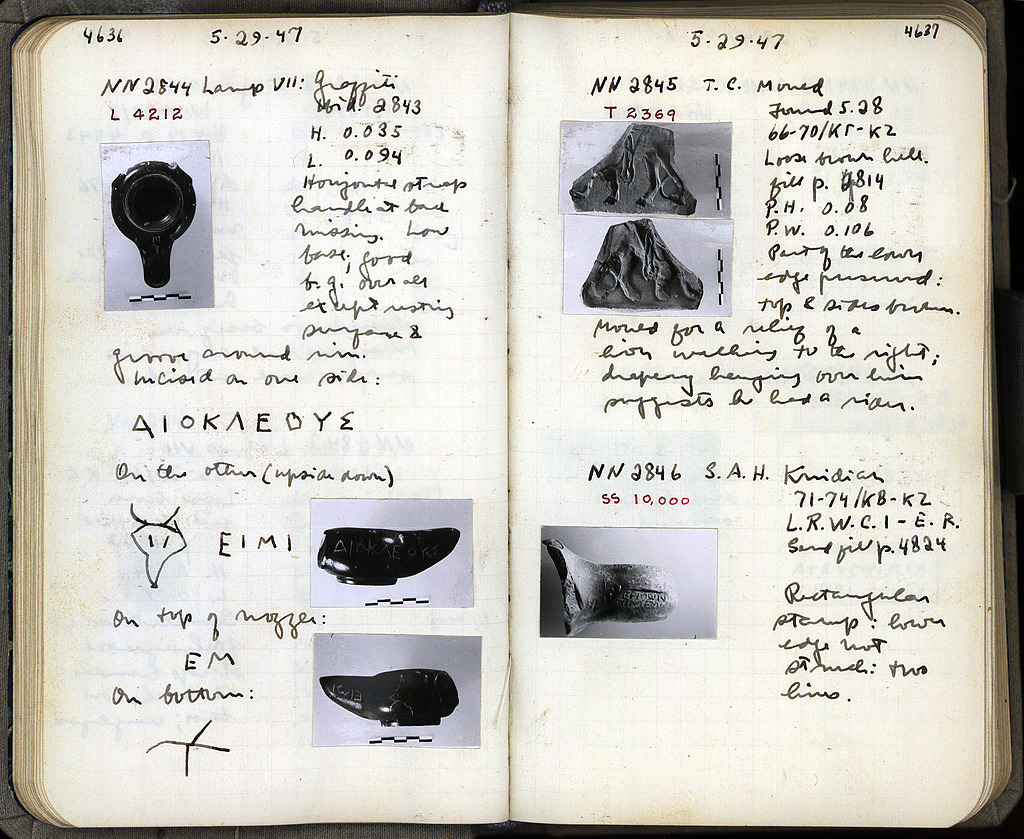 4636
5·29·47
NN 2844 Lamp VII: Graffiti
L 4212
Ibid. 2843
H. 0.035
L. 0.094
Horizontal strap
handle at back
missing. Low
base, good
b.g. over all
except resting
surface &
groove around rim.
Incised on one side:
ΔΙΟΚΛΕΟΥΣ
On the other (upside down)
ΕΙΜΙ
On top of nozzle:
ΕΜ
On bottom:
5·29·47
4637
NN 2845 T.C. Mould
T 2369
Found 5.28
66-70/ΚΓ-ΚΖ
Loose brown
fill p. 4814
P.H. 0.08
P.W. 0.106
Part of the lower
edge preserved:
top & sides broken.
Mould for a relief of a
lion walking to the right;
drapery hanging over lion
suggests he had a rider.
NN 2846 S.A.H. Knidian
SS 10,000
71-74/ΚΒ-ΚΖ
L.R.W.C. 1 - E. R.
Sand fill p. 4824
Rectangular
stamp: lower
edge not
struck: two
lines.